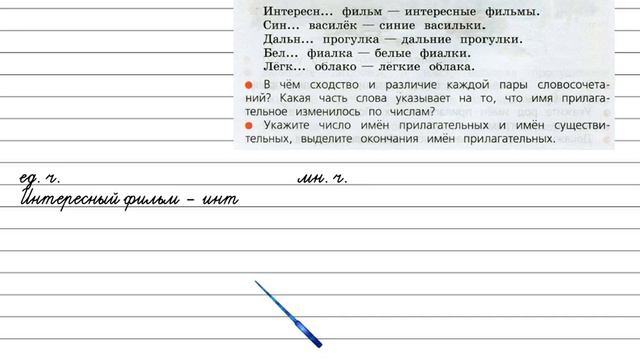 Интересн... фильм — интересные фильмы.
Син... василёк — синие васильки.
Дальн... прогулка — дальние прогулки.
Бел... фиалка — белые фиалки.
Лёгк... облако — лёгкие облака.
● В чём сходство и различие каждой пары словосочета-
ний? Какая часть слова указывает на то, что имя прилага-
тельное изменилось по числам?
● Укажите число имён прилагательных и имён существи-
тельных, выделите окончания имён прилагательных.
ед. ч. мн. ч.
Интересный фильм – инт